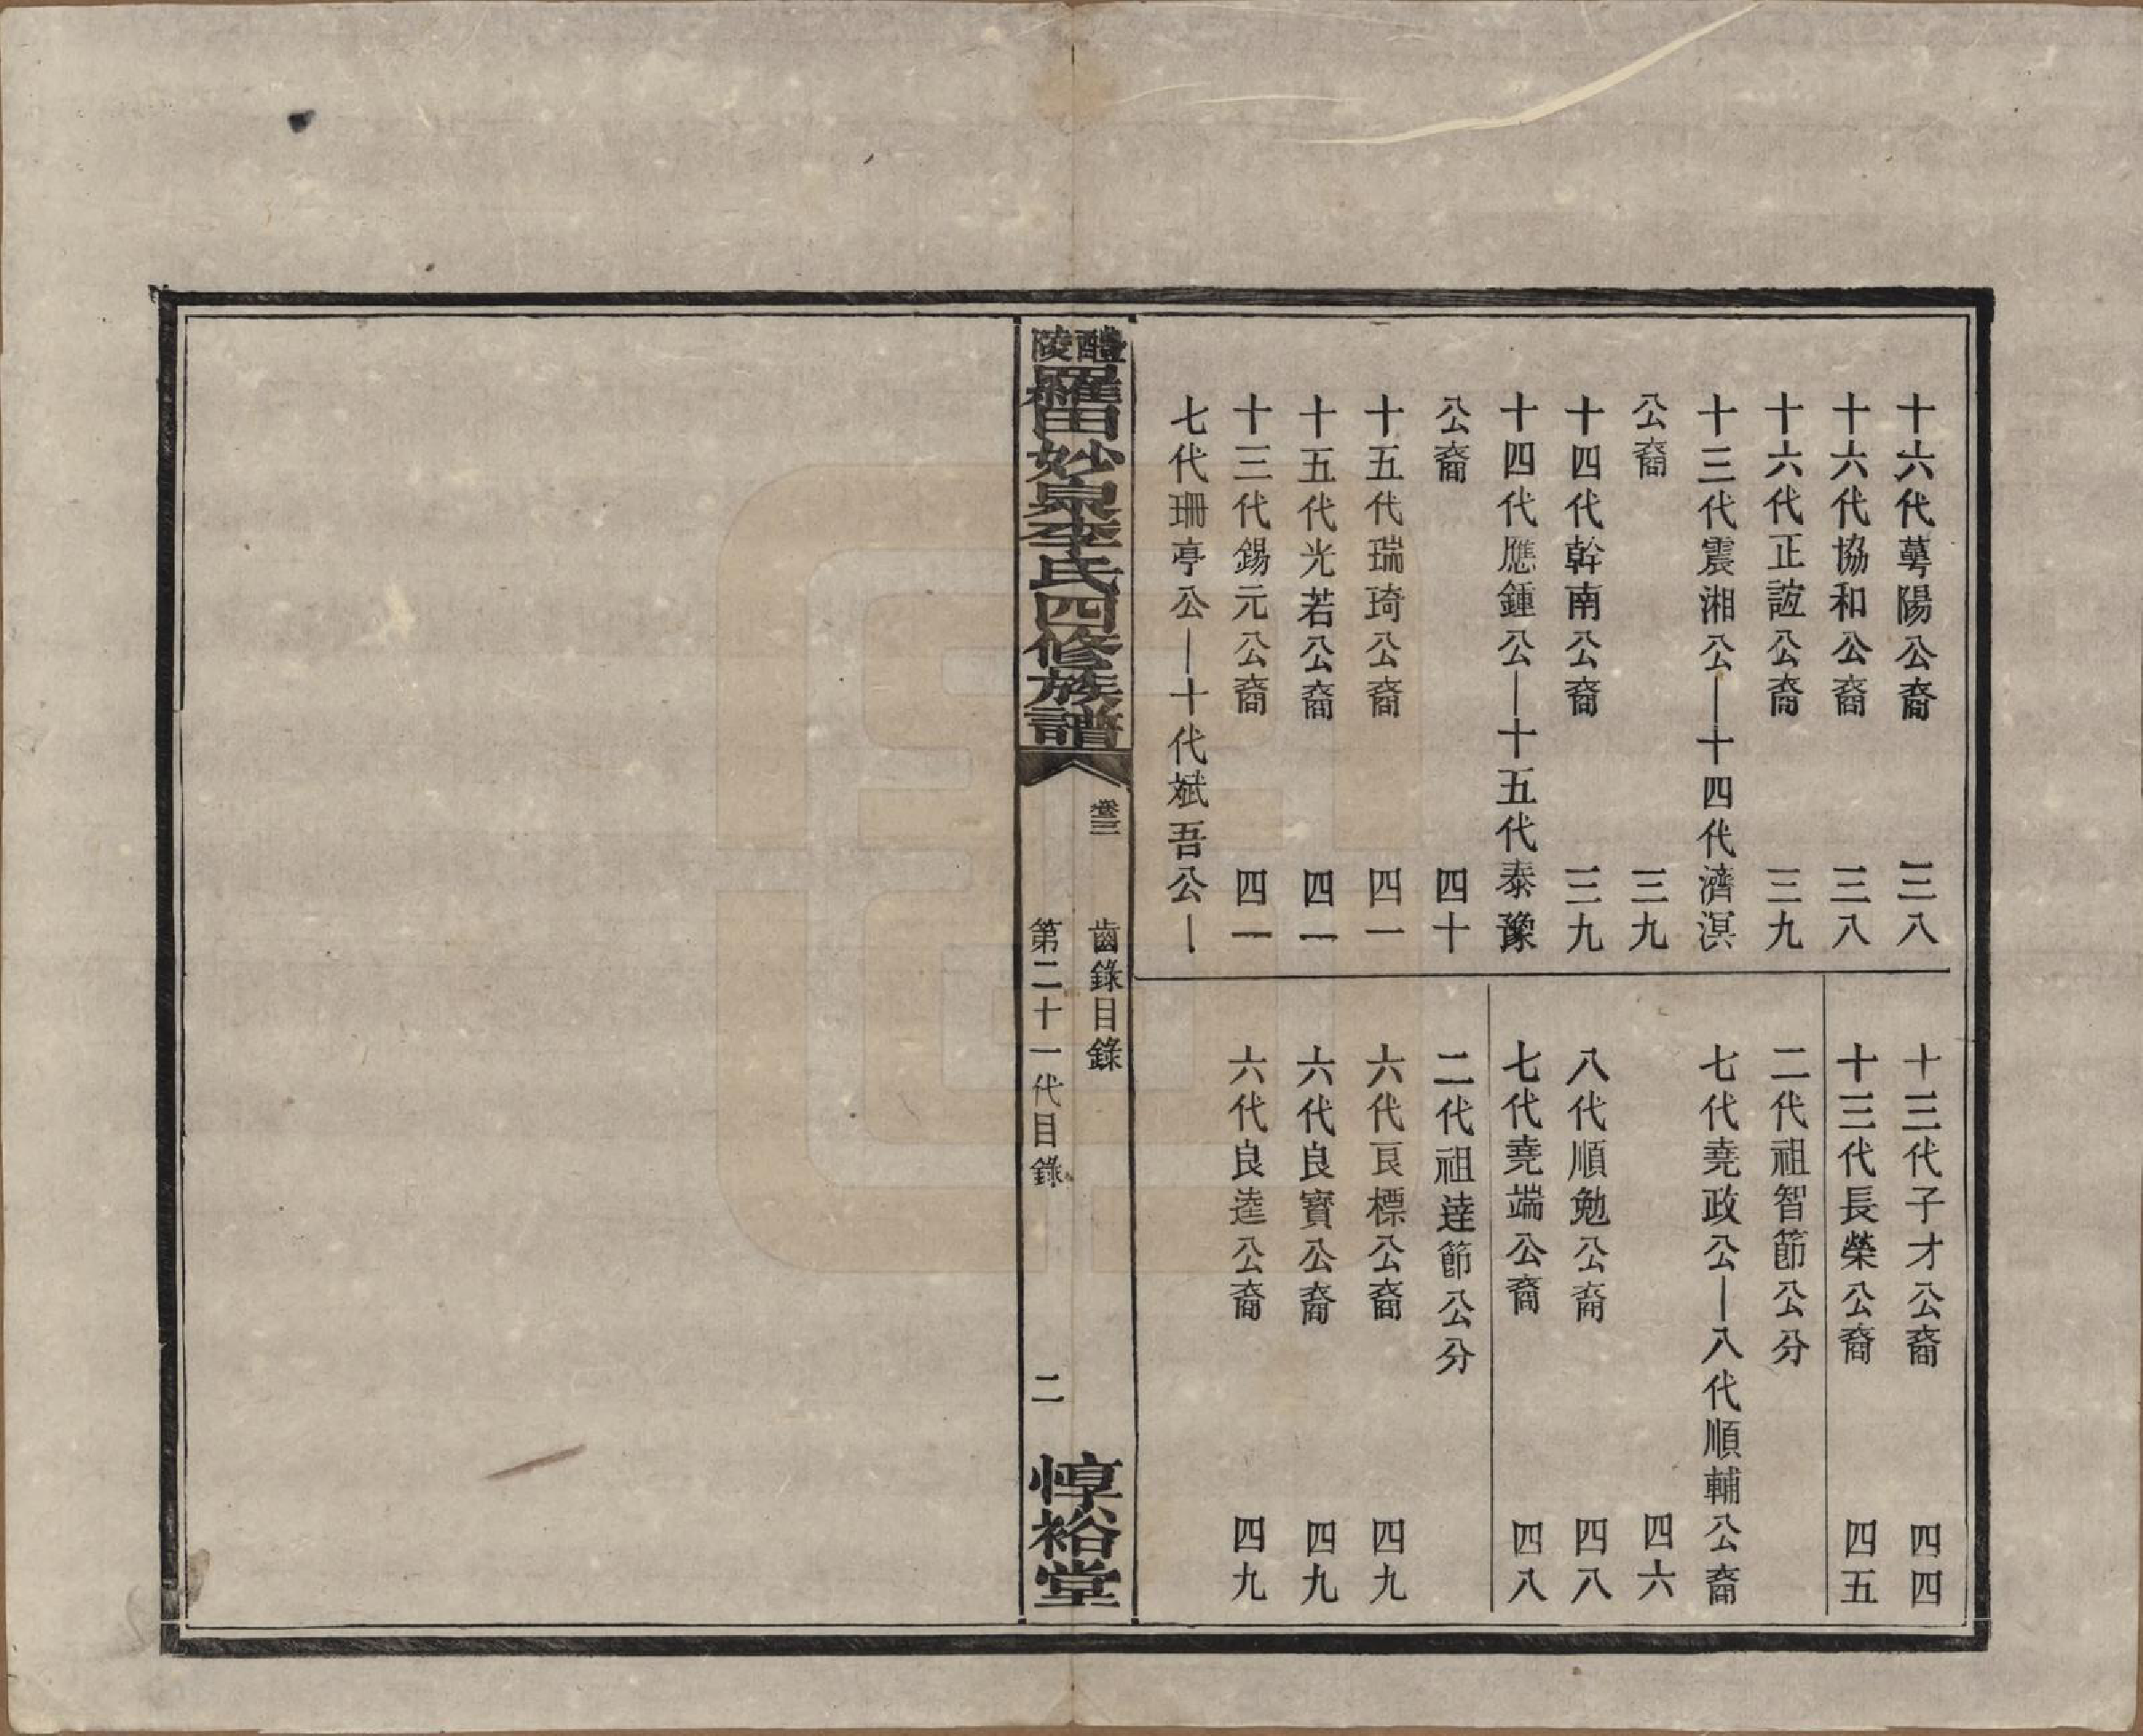 十六代萼陽公裔　三八
十六代協和公裔　三八
十六代正誼公裔　三九
十三代震湘公—十四代濟溟
公裔　三九
十四代幹南公裔　三九
十四代應鍾公—十五代泰豫
公裔　四十
十五代瑞琦公裔　四一
十五代光若公裔　四一
十三代錫元公裔　四一
七代珊亭公—十代斌吾公—
十三代子才公裔　四四
十三代長榮公裔　四五
二代祖智節公分
七代堯政公—八代順輔公裔
四六
八代順勉公裔　四八
七代堯端公裔　四八
二代祖達節公分
六代良標公裔　四九
六代良寶公裔　四九
六代良逵公裔　四九
醴陵羅田妙泉李氏四修族譜
卷三
齒錄目錄
第二十一代目錄
二
惇裕堂